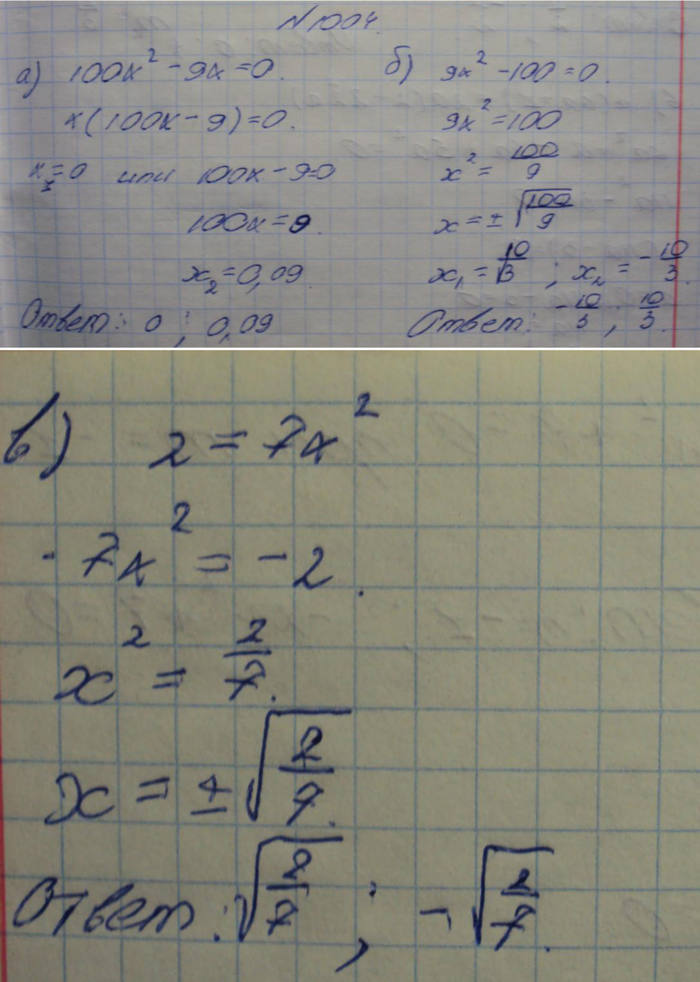 N 1004.
а) 100x² - 9x = 0.
x(100x - 9) = 0.
x₁ = 0 или 100x - 9 = 0
100x = 9.
x₂ = 0,09.
Ответ: 0 ; 0,09
б) 9x² - 100 = 0.
9x² = 100
x² = 100/9
x = ± √(100/9)
x₁ = 10/3 ; x₂ = -10/3.
Ответ: -10/3 ; 10/3.
в) 2 = 7x²
-7x² = -2.
x² = 2/7.
x = ± √(2/7).
Ответ: √(2/7) ; -√(2/7).